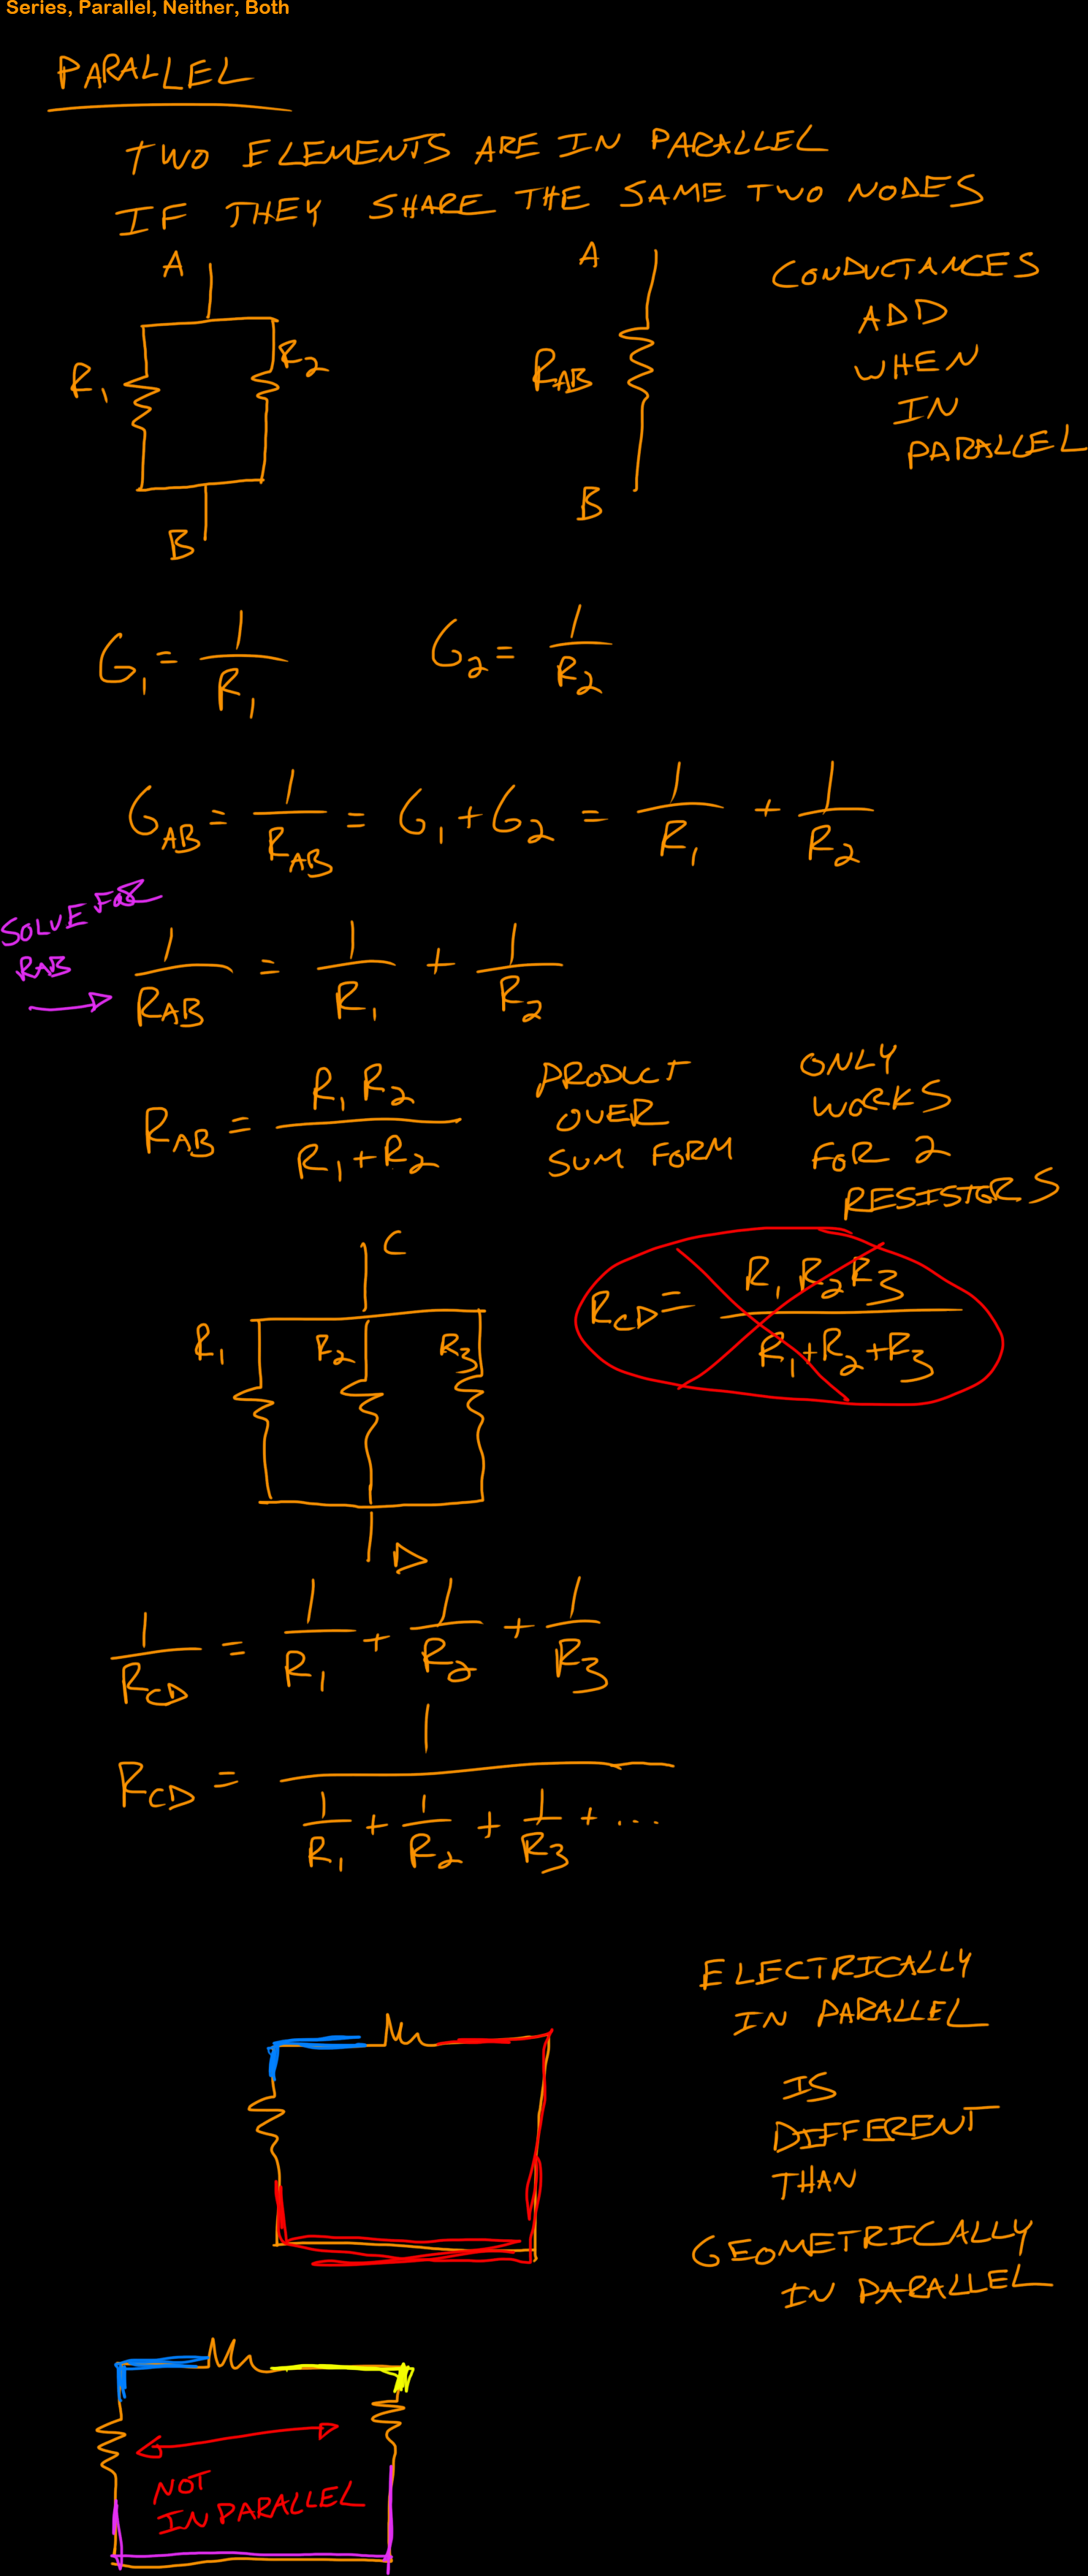 Series, Parallel, Neither, Both
PARALLEL
TWO ELEMENTS ARE IN PARALLEL
IF THEY SHARE THE SAME TWO NODES
A
R₁
R₂
B
A
R_AB
B
CONDUCTANCES
ADD
WHEN
IN
PARALLEL
G₁ = 1/R₁
G₂ = 1/R₂
G_AB = 1/R_AB = G₁ + G₂ = 1/R₁ + 1/R₂
SOLVE FOR
R_AB
1/R_AB = 1/R₁ + 1/R₂
R_AB = R₁R₂/(R₁+R₂)
PRODUCT
OVER
SUM FORM
ONLY
WORKS
FOR 2
RESISTORS
C
R₁
R₂
R₃
D
R_CD = R₁R₂R₃/(R₁+R₂+R₃)
1/R_CD = 1/R₁ + 1/R₂ + 1/R₃
R_CD = 1/(1/R₁ + 1/R₂ + 1/R₃ + ...)
ELECTRICALLY
IN PARALLEL
IS
DIFFERENT
THAN
GEOMETRICALLY
IN PARALLEL
NOT
IN PARALLEL